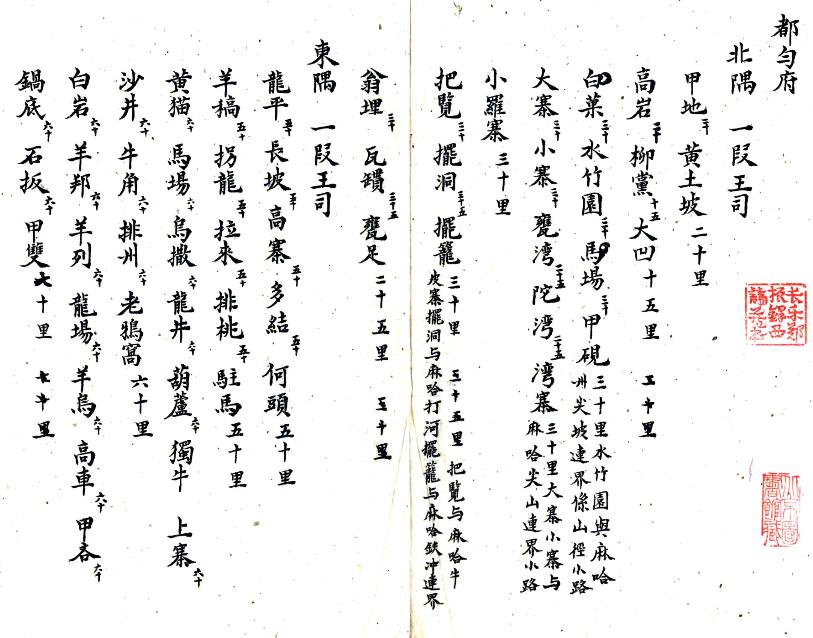 都勻府
北隅 一段王司
甲地二十 黄土坡二十里
高岩二十 柳黨十五 大凹十五里 二十里
白菓三十 水竹園三十 馬場三十 甲硯三十里水竹園與麻哈
州尖坡連界係山徑小路
大寨三十 小寨三十 甕湾三十五 陀湾三十五 湾寨三十里大寨小寨与
麻哈尖山連界小路
小羅寨三十里
把覧三十 擺洞三十五 擺籠三十里 三十五里 把覧与麻哈牛
皮寨擺洞与麻哈打河擺籠与麻哈缺冲連界
翁埋三十 瓦鑚三十五 甕足二十五里 三十里
東隅 一段王司
龍平五十 長坡五十 高寨五十 多結五十 何頭五十里
羊槁五十 拐龍五十 拉來五十 排桃五十 駐馬五十里
黄猫六十 馬場六十 烏撒六十 龍井六十 葫蘆六十 獨牛 上寨六十
沙井六十 牛角六十 排州六十 老鴉窩六十里
白岩六十 羊邦六十 羊列六十 龍場六十 羊烏六十 高車六十 甲呑六十
鍋底六十 石扳六十 甲雙七十里 七十里